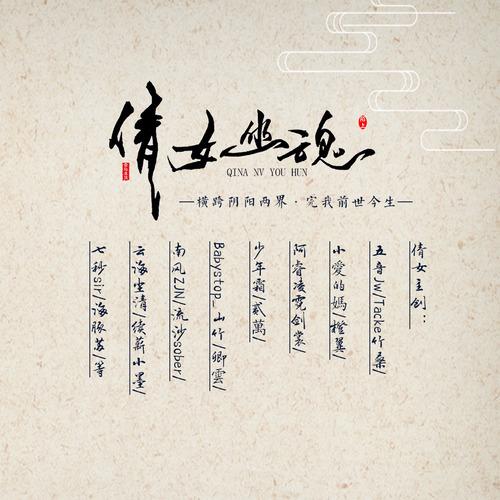 倩女幽魂
QINA NV YOU HUN
—横跨阴阳两界·完我前世今生—
倩女主创：
五音Jw/Tacke竹桑/
小愛的媽/橙翼/
阿睿凌霓剑裳/
少年霜/贰萬/
Babystop_山竹/卿雲/
南风ZJN/流沙sober/
云海尘清/续薪小墨/
七秒sir/海豚苏/等